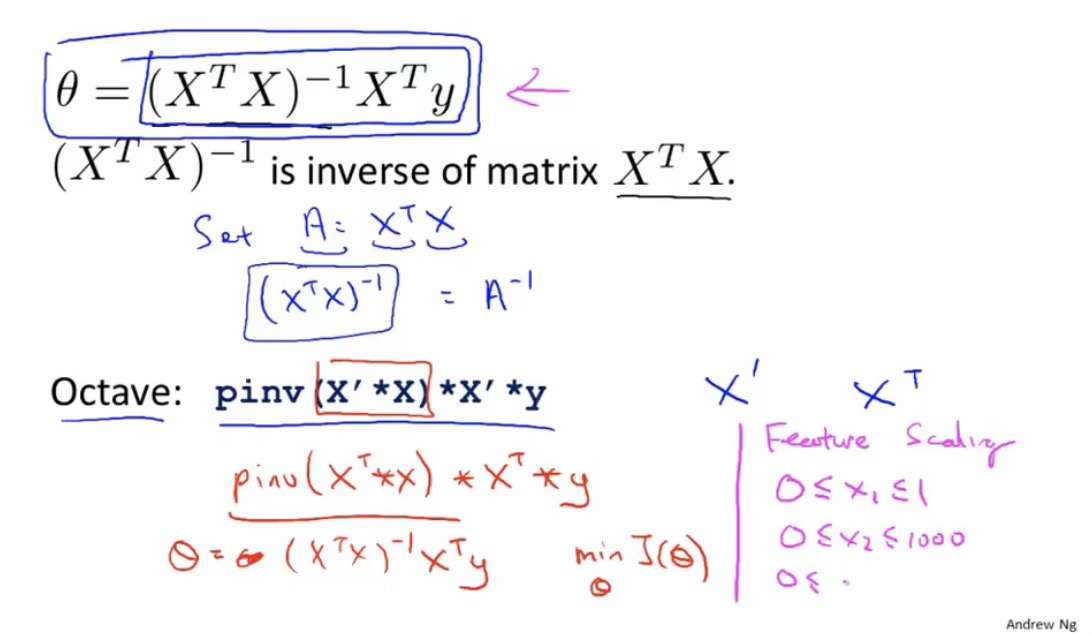 θ = (XᵀX)⁻¹Xᵀy
(XᵀX)⁻¹ is inverse of matrix XᵀX.
Set A = XᵀX
(XᵀX)⁻¹ = A⁻¹
Octave: pinv(X'*X)*X'*y
X' Xᵀ
pinv(Xᵀ*X)*Xᵀ*y
θ = (XᵀX)⁻¹Xᵀy
min J(θ)
θ
Feature Scaling
0 ≤ x₁ ≤ 1
0 ≤ x₂ ≤ 1000
0 ≤ .
Andrew Ng